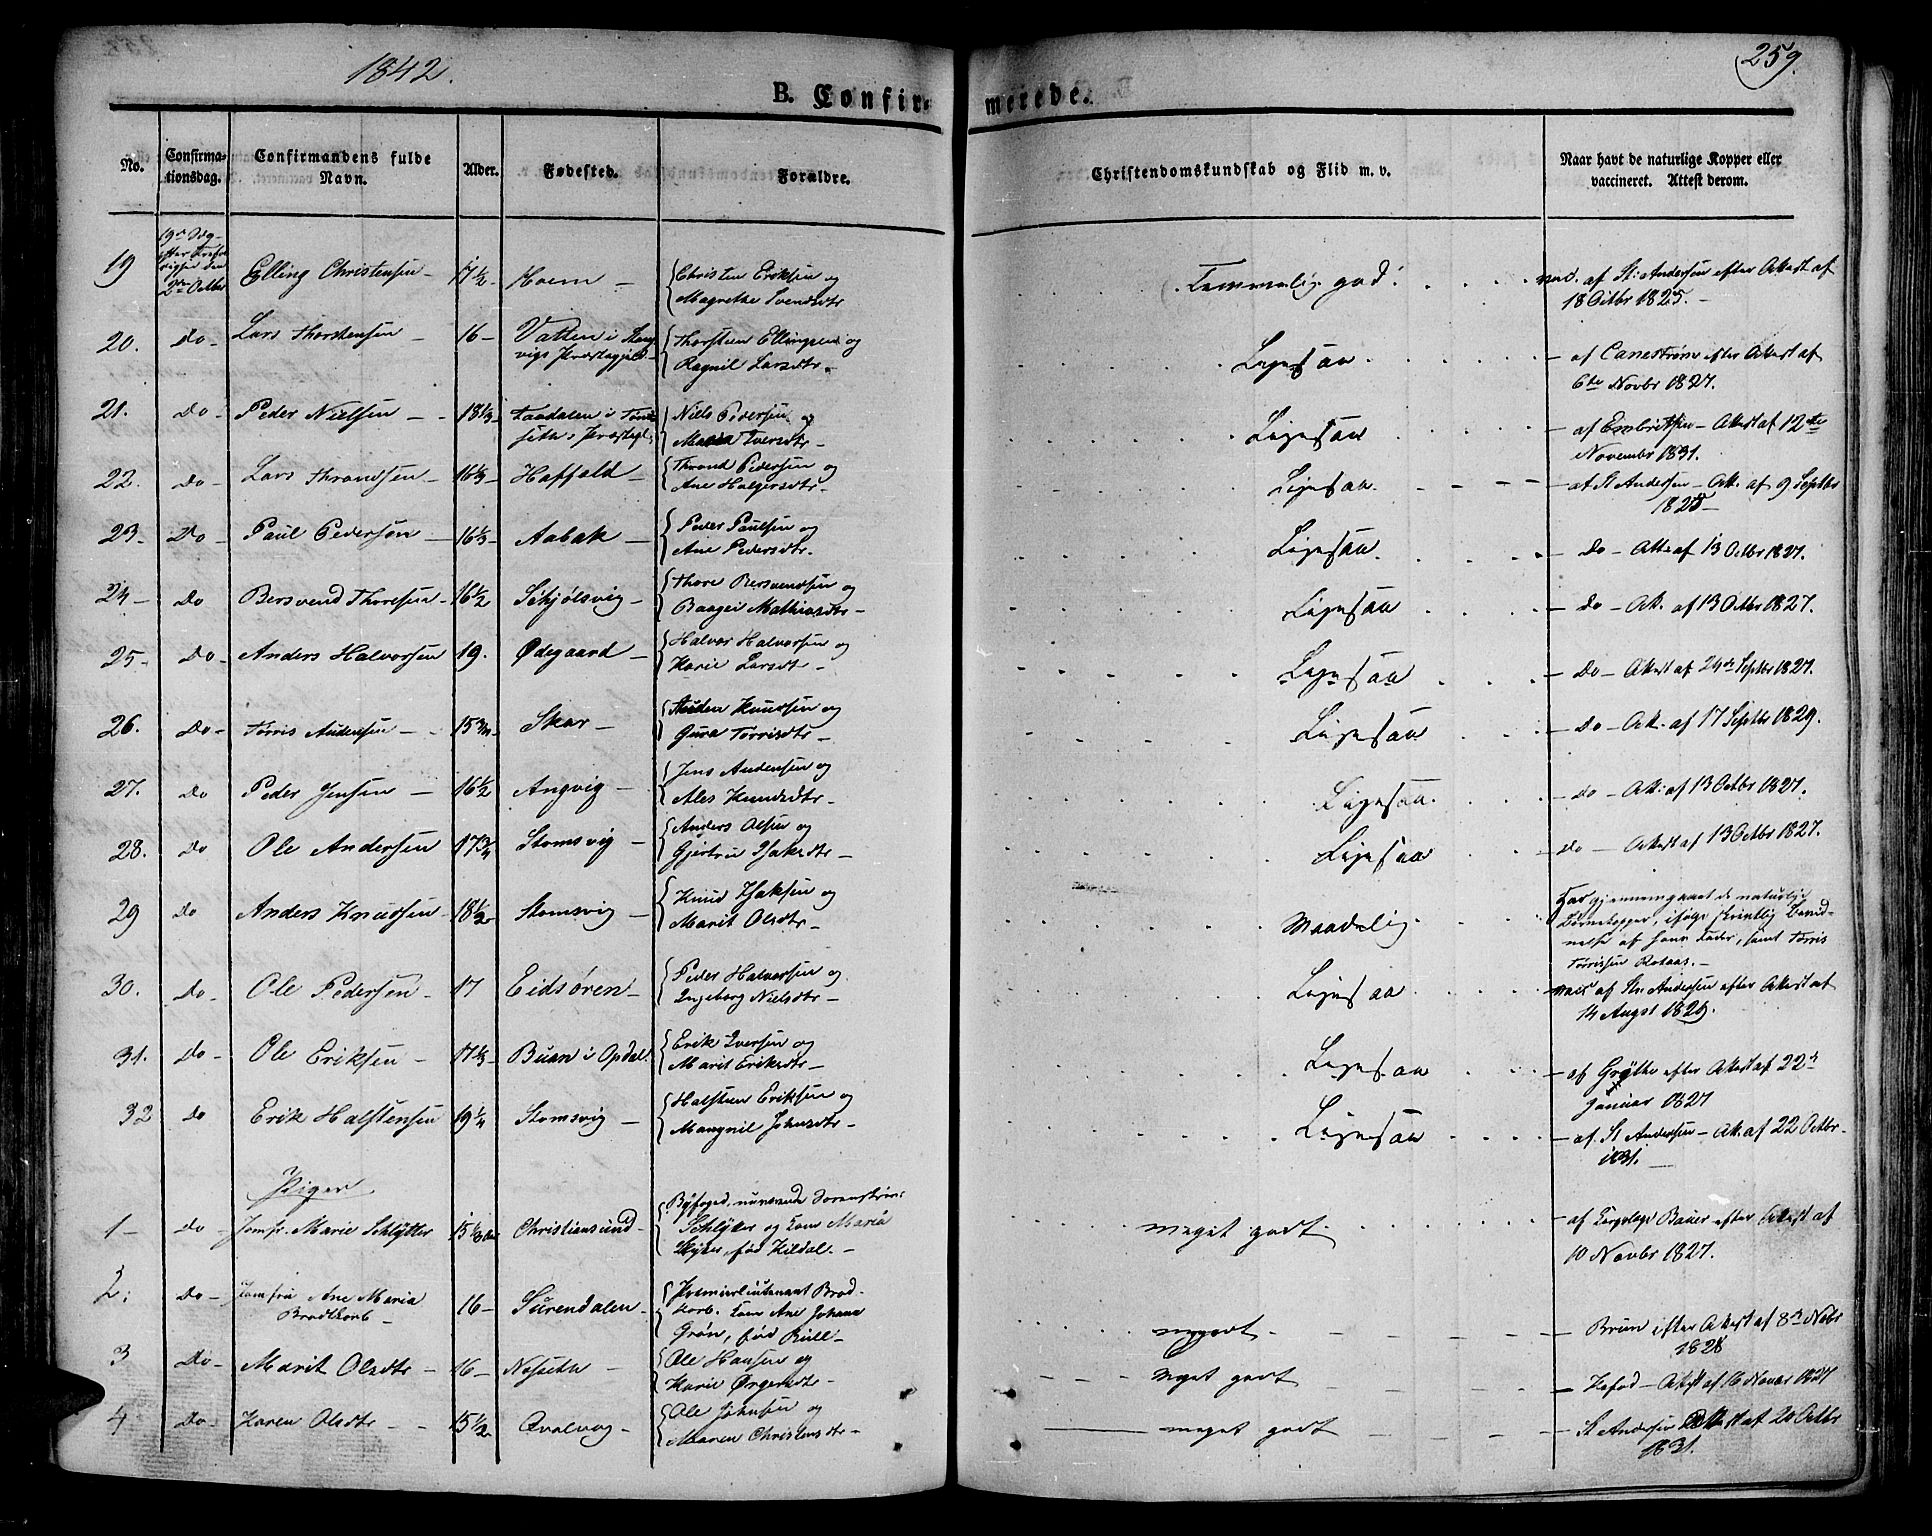 1842.
259.
B. Confirmerede.
No. Confirmationsdag. Confirmandens fulde Navn. Alder. Fødested. Forældre. Christendomskundskab og Flid m. v. Naar havt de naturlige Kopper eller vaccineret. Attest derom.
19 Elling Christensen 17½ Hoem Christen Eriksen og Magrethe Svendsdtr Temmelig god. vac. af St: Andersen efter Attest af 18 Octbr 1825.
20. Do Lars Thorstensen 16 Vatten i Præstegjeld Thorsten Ellingsen og Ragnil Larsdtr. Ligesaa af Canestrøm efter Attest af 6te Novbr 1827.
21. Do Peder Nielsen 18⅓ Præstegl. Niels Pedersen og Iversdtr Ligesaa af Embritsen Attest af 12te Novembr 1831.
22. Do Lars Throndsen 16⅓ Haffeld Thrond Pedersen og Ane Holgersdtr. Ligesaa. af St Andersen Att. af 9 Septbr 1828
23. Do Paul Pedersøn 16⅓ Aabak Peder Paulsen og Ane Pedersdtr. Ligesaa Do Att: af 13 Octbr 1827.
24 Do Bersvend Thoresen 16½ Schjølsvig Thore Bersvendsen og Mathiasdtr Ligesaa Do Att. af 13 Octbr 1827.
25 Do Anders Halvorsen 19. Ødegaard Halvor Halvorsen og Karie Larsdtr Ligesaa Do Attest af 24de Septbr 1827.
26. Do Torris Audensen 15¾ Skar Auden Knudsen og Gura Torrisdtr Ligesaa Do Att. af 17 Septbr 1829.
27. Do Peder Jensen 16½ Angvig Jens Andersen og Ales Knudsdtr. Ligesaa. Do Att: af 13 Octbr 1827.
28. Do Ole Andersen 17¾ Stomsvig Anders Olsen og Gjertru Isaksdtr Ligesaa Do Attest af 13 Octbr 1827.
29 Do Anders Knudsen 18½ Stomsvig Knud Isaksen og Marit Olsdtr Maadelig. Har gjennemgaaet de naturlig Børnekopper, ifølge skriftlig af hans Fader, samt Torris Torrissen
30. Do Ole Pedersen 17 Eidsøren Peder Halvorsen og Ingeborg Nielsdtr Ligesaa vac. af St. Andersen efter Attest af 14 Augst 1829.
31. Do Ole Eriksen 17⅓ Buan i Opdal. Erik Iversen og Marit Eriksdtr Ligesaa af Grøthe efter Attest af 22de Januar 1827
32 Do Erik Halstensen 19¼ Stomsvig Halsten Eriksen og Maagnil Johnsdtr Ligesaa af St Andersen Att. af 22 Octbr 1831.
Piger
1 Do Jomfr. Marie Schlytter 15⅓ Christiansund Byfoged, nuværende Schlytter og Fru Maria født Kildal. meget godt af Bauer efter Attest af 10 Novbr 1827.
2: Do Jomfru Ane Maria Brodtkorb 16 Surendalen Premierlieutenant Brodtkorb. Ane Johana Grøn, født Bull Brun efter Attest af 8de Nobr 1828
3 Do Marit Olsdtr 16 Naseth Ole Hansen og Karie Ørgersdtr Meget godt Attest af 16 Novbr 1827
4 Do Karen Olsdtr 15½ Qvalvog Ole Johnsen og Maren Christensdtr meget godt St Andersen Attest af 20 Octbr 1831.